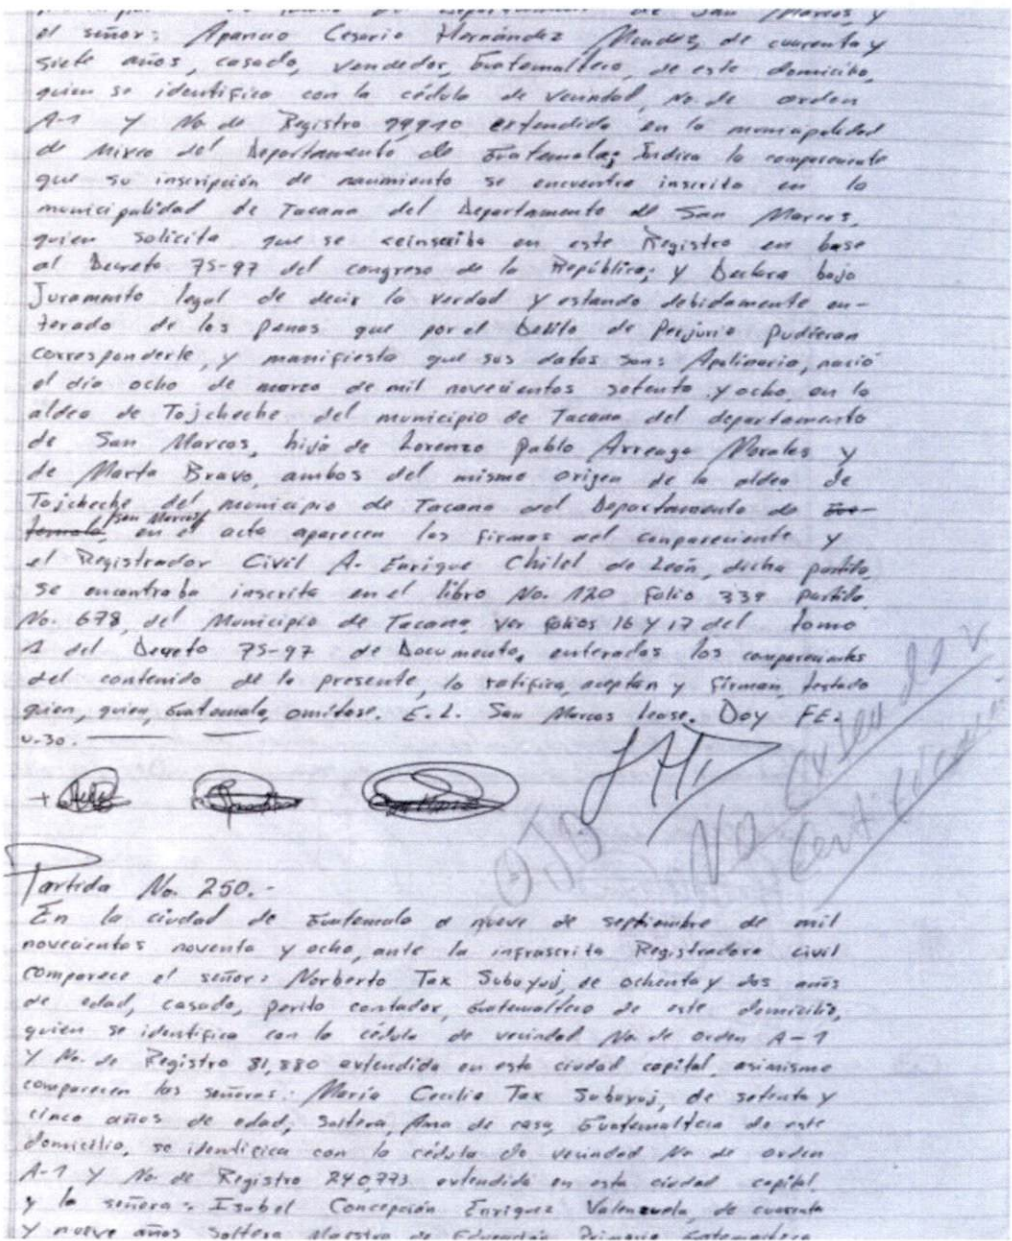 de San Marcos, y
el señor: Aparicio Cesario Hernández Mendez, de cuarenta y
siete años, casado, vendedor, Guatemalteco, de este domicilio,
quien se identifica con la cédula de vecindad, No. de orden
A-1 y No. de Registro 99910 extendida en la municipalidad
de Mixco del Departamento de Guatemala; Indica la compareciente
que su inscripción de nacimiento se encuentra inscrita en la
municipalidad de Tacana del Departamento de San Marcos,
quien solicita que se reinscriba en este Registro en base
al Decreto 75-97 del congreso de la República; y Declara bajo
Juramento legal de decir la verdad y estando debidamente en-
terado de las penas que por el Delito de Perjurio pudieran
corresponderle, y manifiesta que sus datos son: Apolinaria, nació
el día ocho de marzo de mil novecientos setenta y ocho, en la
aldea de Tojcheche del municipio de Tacana del departamento
de San Marcos, hija de Lorenzo Pablo Arreaga Morales y
de Marta Bravo, ambos del mismo origen de la aldea de
Tojcheche del municipio de Tacana del Departamento de Gua-
temala, /San Marcos/ en el acta aparecen las firmas del compareciente y
el Registrador Civil A. Enrique Chilel de León, dicha partida
se encontraba inscrita en el libro No. 120 Folio 339 partida
No. 678, del Municipio de Tacana, ver folios 16 y 17 del tomo
1 del Decreto 75-97 de Documento, enterados los comparecientes
del contenido de la presente, lo ratifica, aceptan y firman, testado
quien, quien, Guatemala, omítase. E.L. San Marcos lease. Doy FE.
v.30.
OJO
No extender
Certificación
Partida No. 250.-
En la ciudad de Guatemala a nueve de septiembre de mil
novecientos noventa y ocho, ante la infrascrita Registradora civil
comparece el señor: Norberto Tax Subuyuj, de ochenta y dos años
de edad, casado, perito contador, Guatemalteco de este domicilio,
quien se identifica con la cédula de vecindad No. de orden A-1
y No. de Registro 81,880 extendida en esta ciudad capital, asimismo
comparecen las señoras: María Cecilia Tax Subuyuj, de setenta y
cinco años de edad, Soltera, Ama de casa, Guatemalteca de este
domicilio, se identifica con la cédula de vecindad No. de orden
A-1 y No. de Registro 240,773 extendida en esta ciudad capital.
y la señora: Isabel Concepción Enriquez Valenzuela, de cuarenta
y nueve años Soltera Maestra de Educación Primaria Guatemalteca